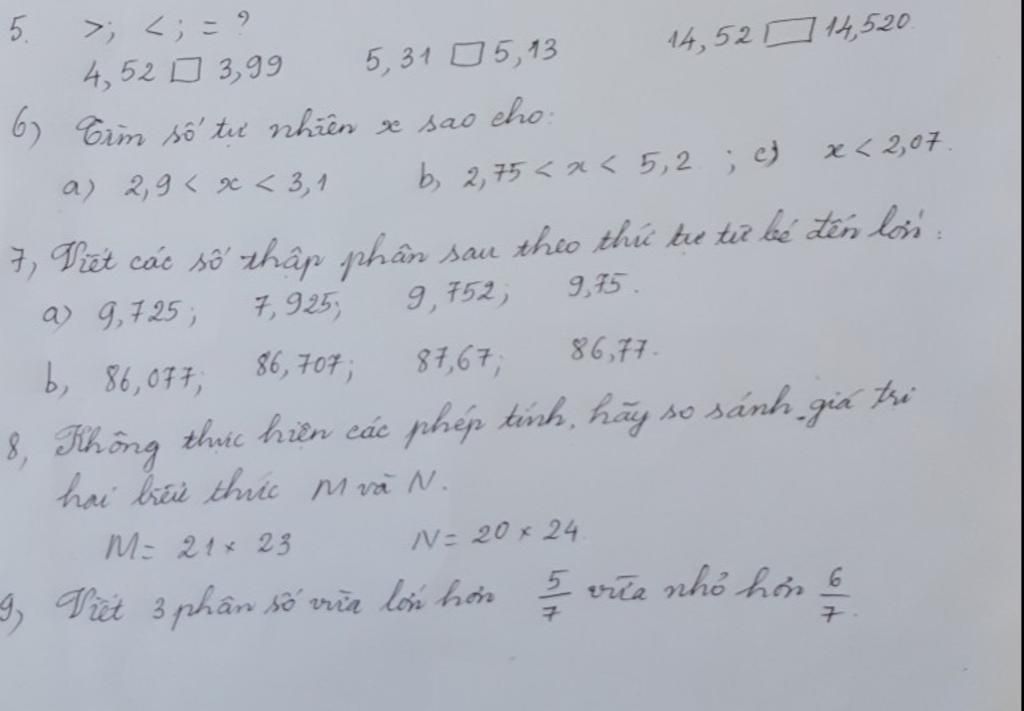 5. >; < ; = ?
4,52 □ 3,99 5,31 □ 5,13 14,52 □ 14,520.
6) Tìm số tự nhiên x sao cho:
a) 2,9 < x < 3,1 b, 2,75 < x < 5,2 ; c) x < 2,07.
7, Viết các số thập phân sau theo thứ tự từ bé đến lớn:
a) 9,725; 7,925; 9,752; 9,75.
b, 86,077; 86,707; 87,67; 86,77.
8, Không thực hiện các phép tính, hãy so sánh giá trị
hai biểu thức M và N.
M = 21 × 23 N = 20 × 24
9, Viết 3 phân số vừa lớn hơn 5/7 vừa nhỏ hơn 6/7.